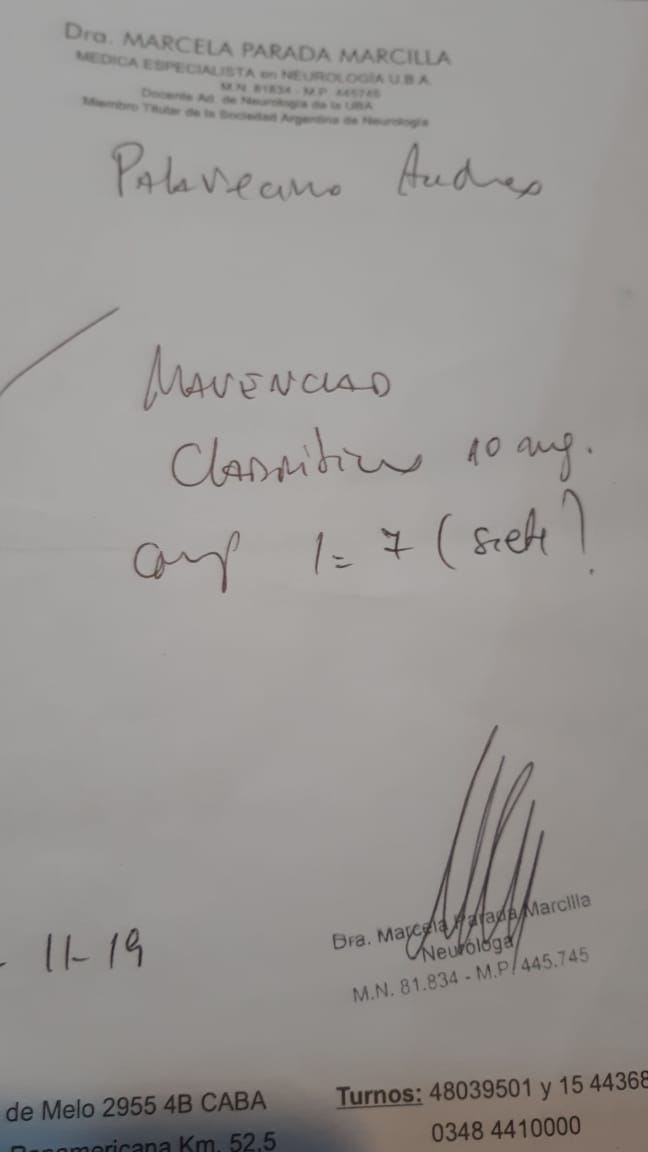 Dra. MARCELA PARADA MARCILLA
MEDICA ESPECIALISTA en NEUROLOGÍA U.B.A.
M.N. 81834 - M.P. 445745
Docente Ad. de Neurología de la UBA
Miembro Titular de la Sociedad Argentina de Neurología
Palavecino Andres
MAVENCLAD
Cladribina 10 mg.
comp 1= 7 (siete)
11-19
Dra. Marcela Parada Marcilla
Neuróloga
M.N. 81.834 - M.P. 445.745
de Melo 2955 4B CABA
Turnos: 48039501 y 15 44368
Panamericana Km. 52,5
0348 4410000